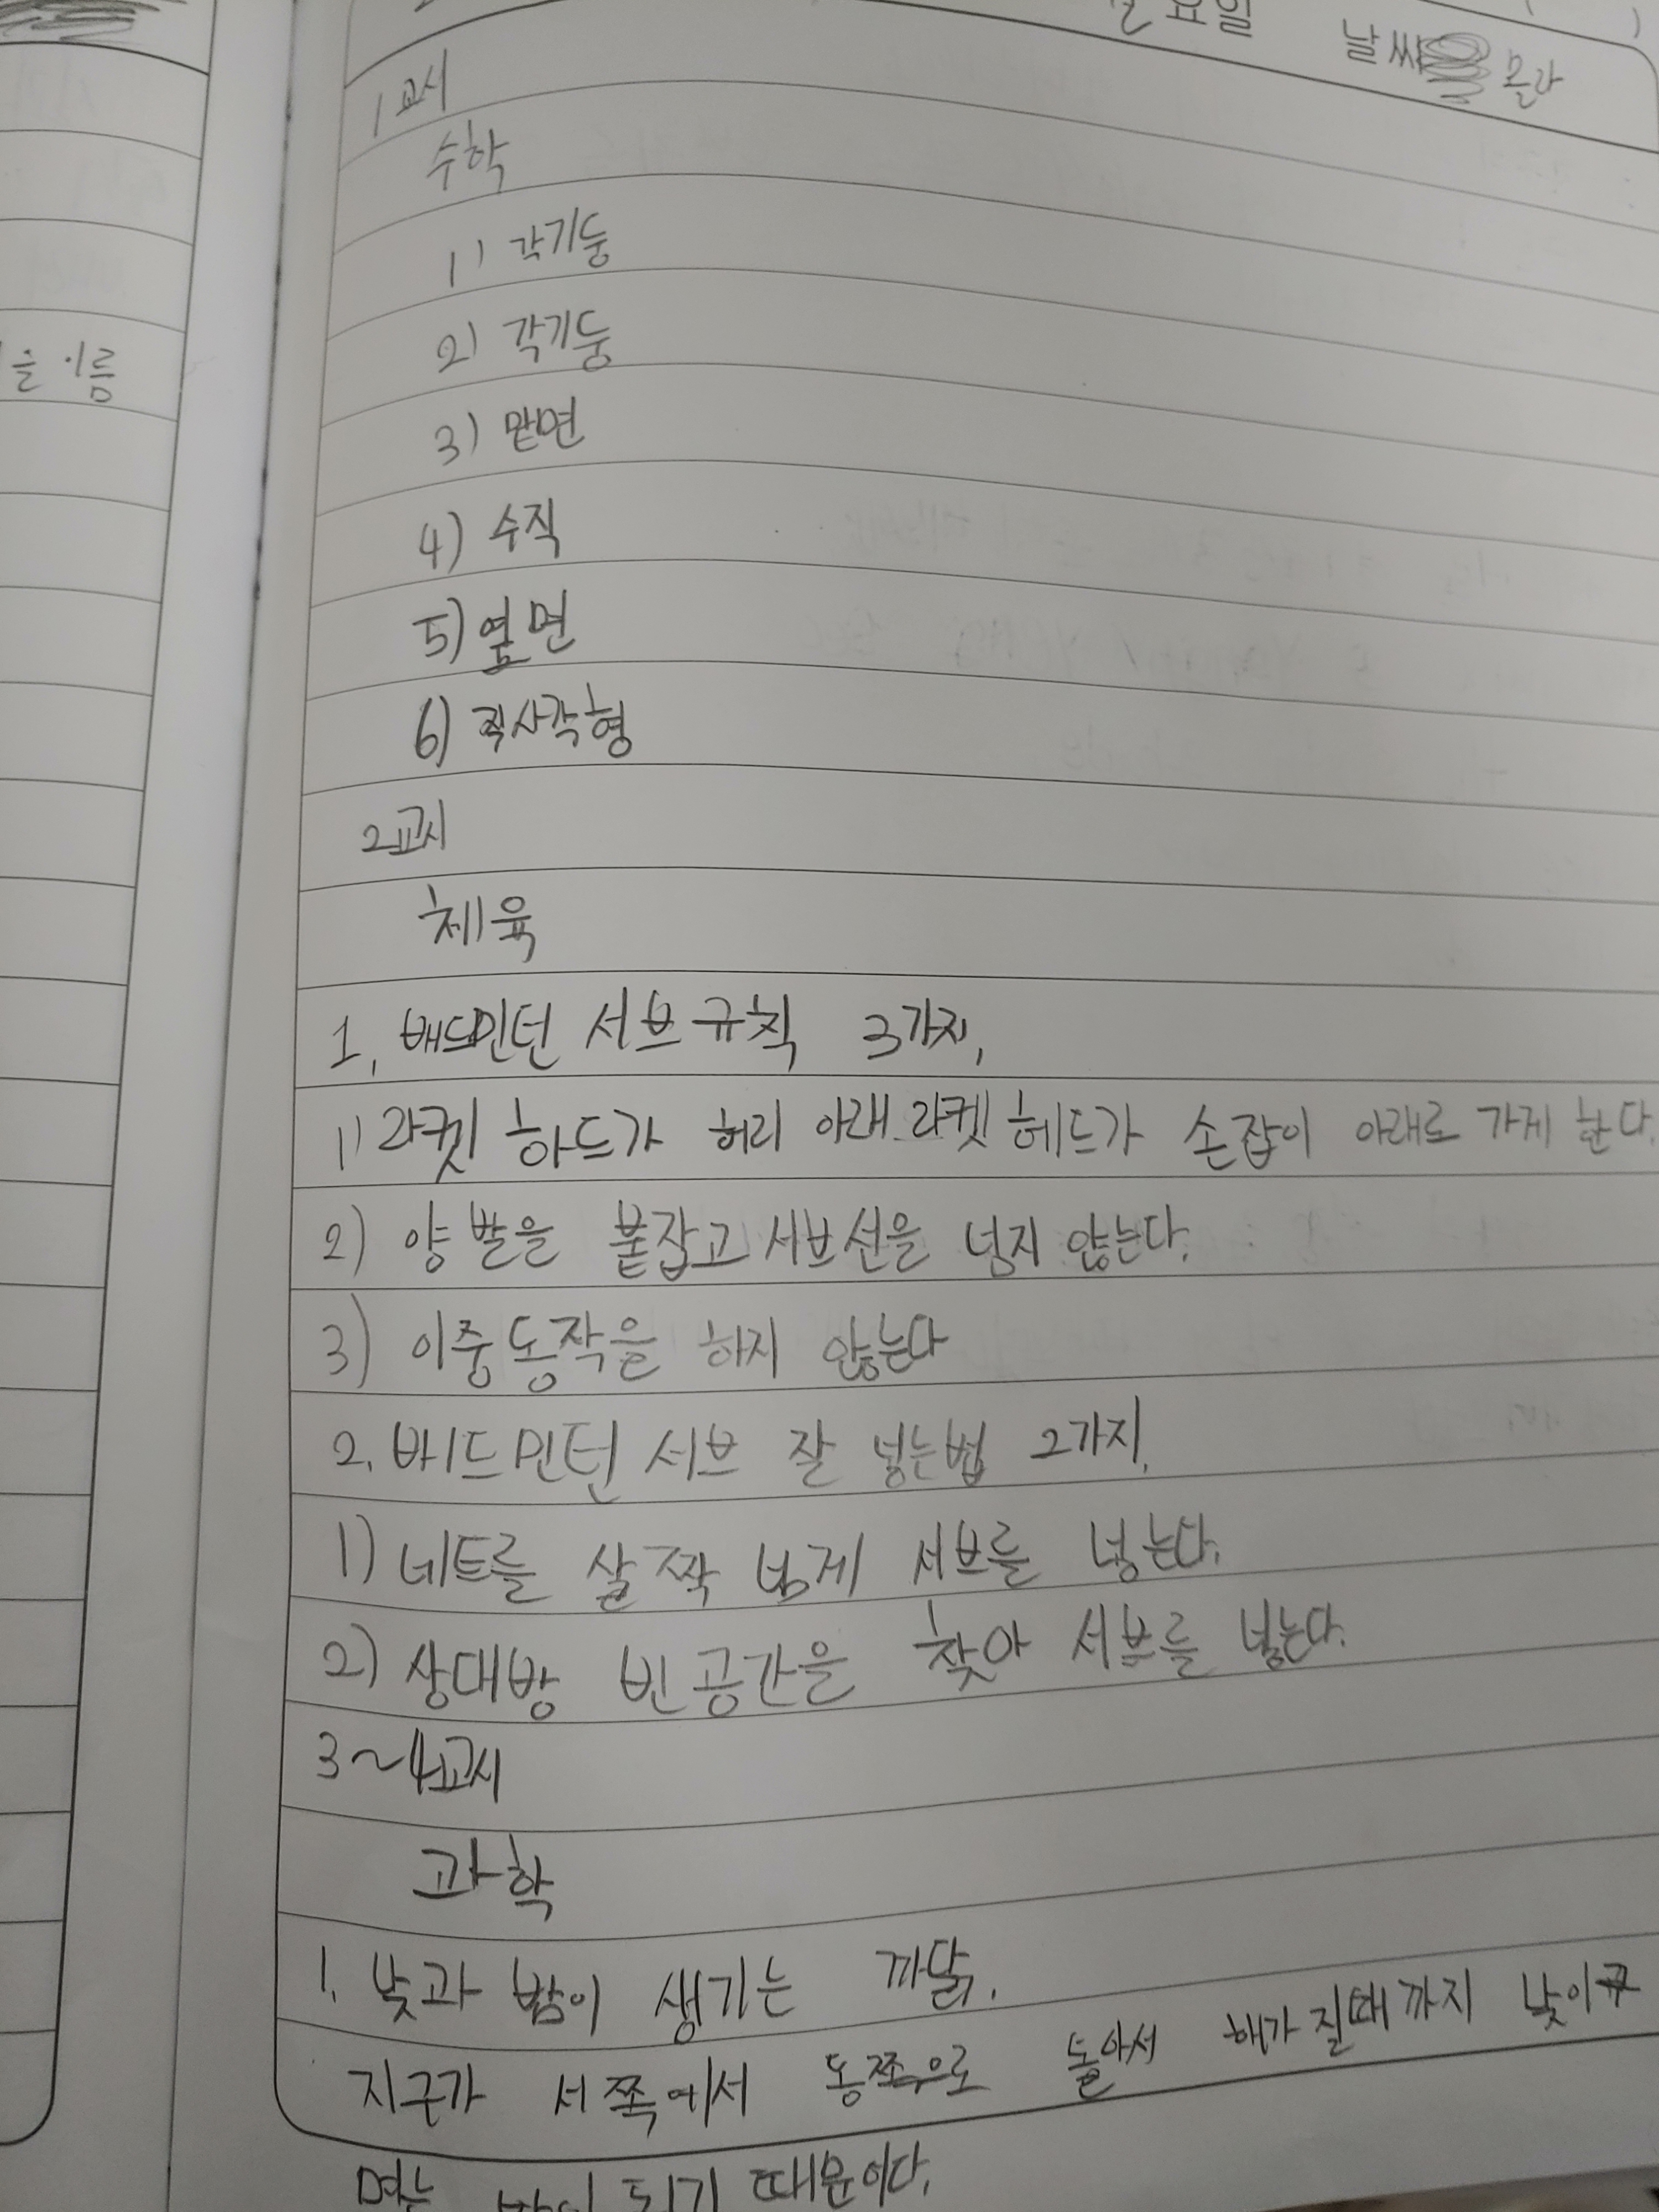 요일 날씨 몰라
1교시
수학
1) 각기둥
2) 각기둥
을 이름
3) 맡면
4) 수직
5) 옆면
6) 직사각형
2교시
체육
1. 배드민턴 서브규칙 3가지.
1) 라켓 하드가 허리 아래 라켓 헤드가 손잡이 아래로 가게 한다.
2) 양 발을 붙잡고 서브선을 넘지 않는다.
3) 이중동작을 하지 않는다
2. 배드민턴 서브 잘 넣는법 2가지.
1) 네트를 살짝 넘게 서브를 넣는다.
2) 상대방 빈공간을 찾아 서브를 넣는다.
3~4교시
과학
1. 낮과 밤이 생기는 까닭.
지구가 서쪽에서 동쪽으로 돌아서 해가 질때까지 낮이구
밤이 되기 때문이다.